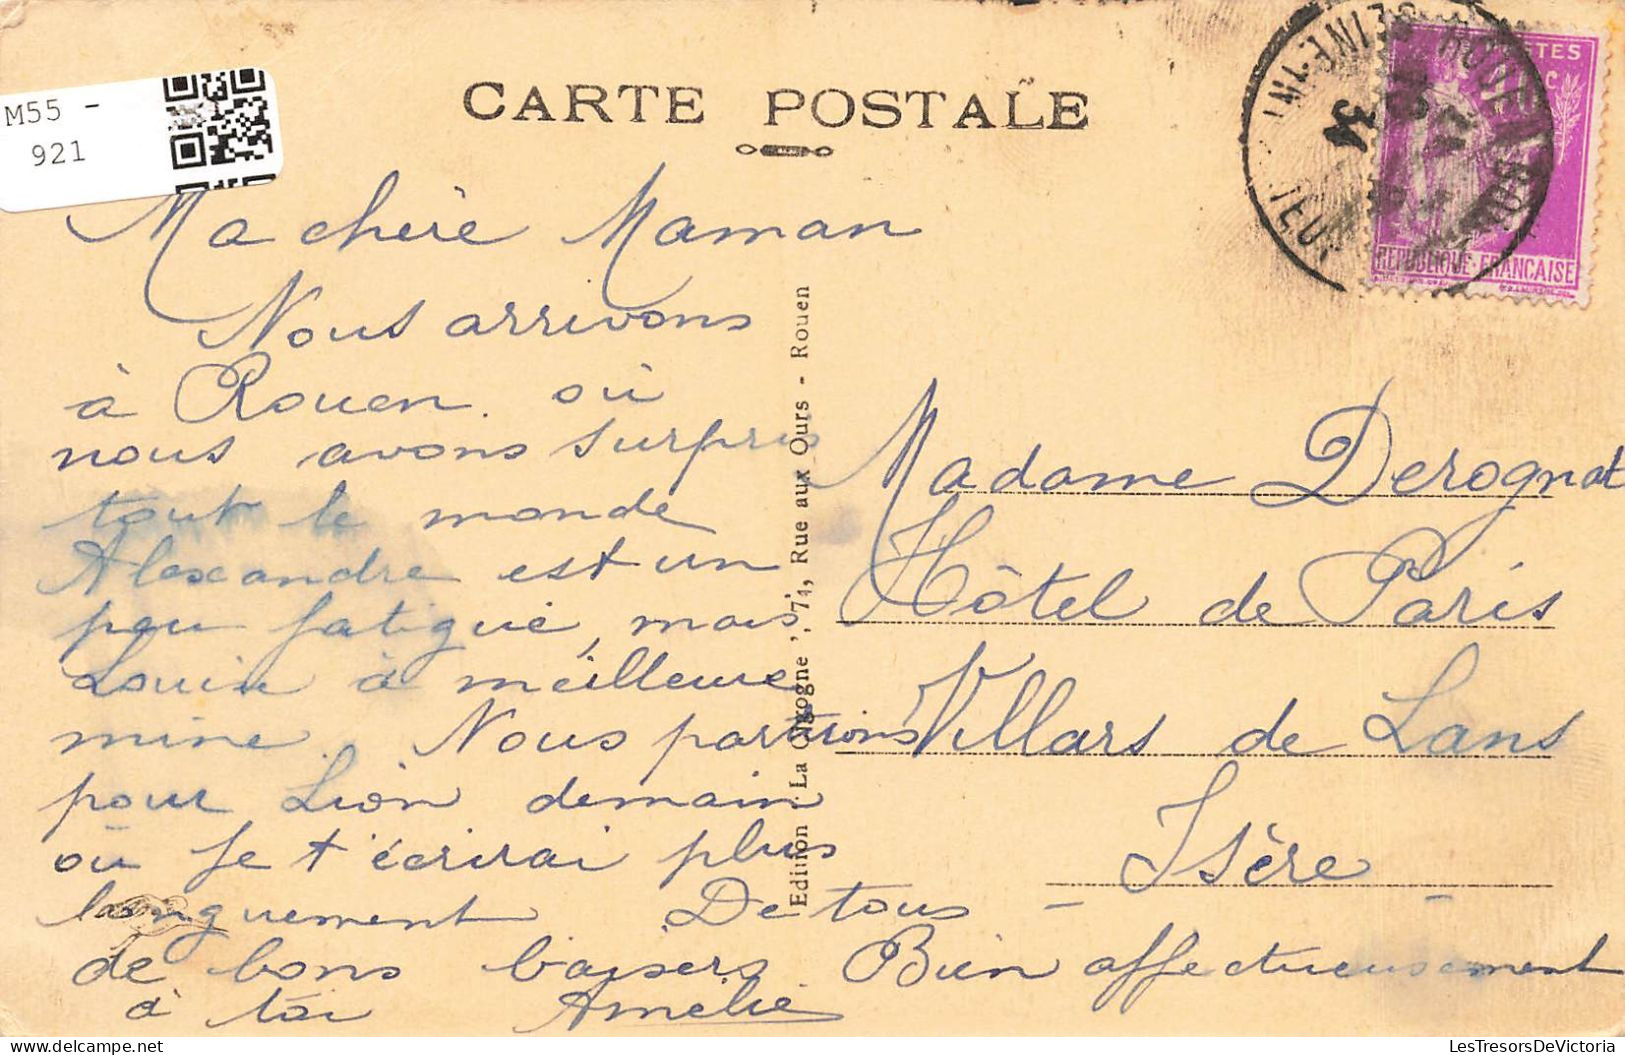 M55 -
921
CARTE POSTALE
POSTES
40c
REPUBLIQUE·FRANÇAISE
34
Ma chère Maman
Nous arrivons
à Rouen. où
nous avons surpris
tout le monde
Alexandre est un
peu fatigué, mais
Louise à meilleure
mine. Nous partirons
pour Lion demain
où je t'écrirai plus
longuement De tous
de bons baisers Bien affectueusement
à toi Amélie
Edition "La Cigogne", 74, Rue aux Ours - Rouen
Madame Derognat
Hôtel de Paris
Villars de Lans
Isère
LesTresorsDeVictoria